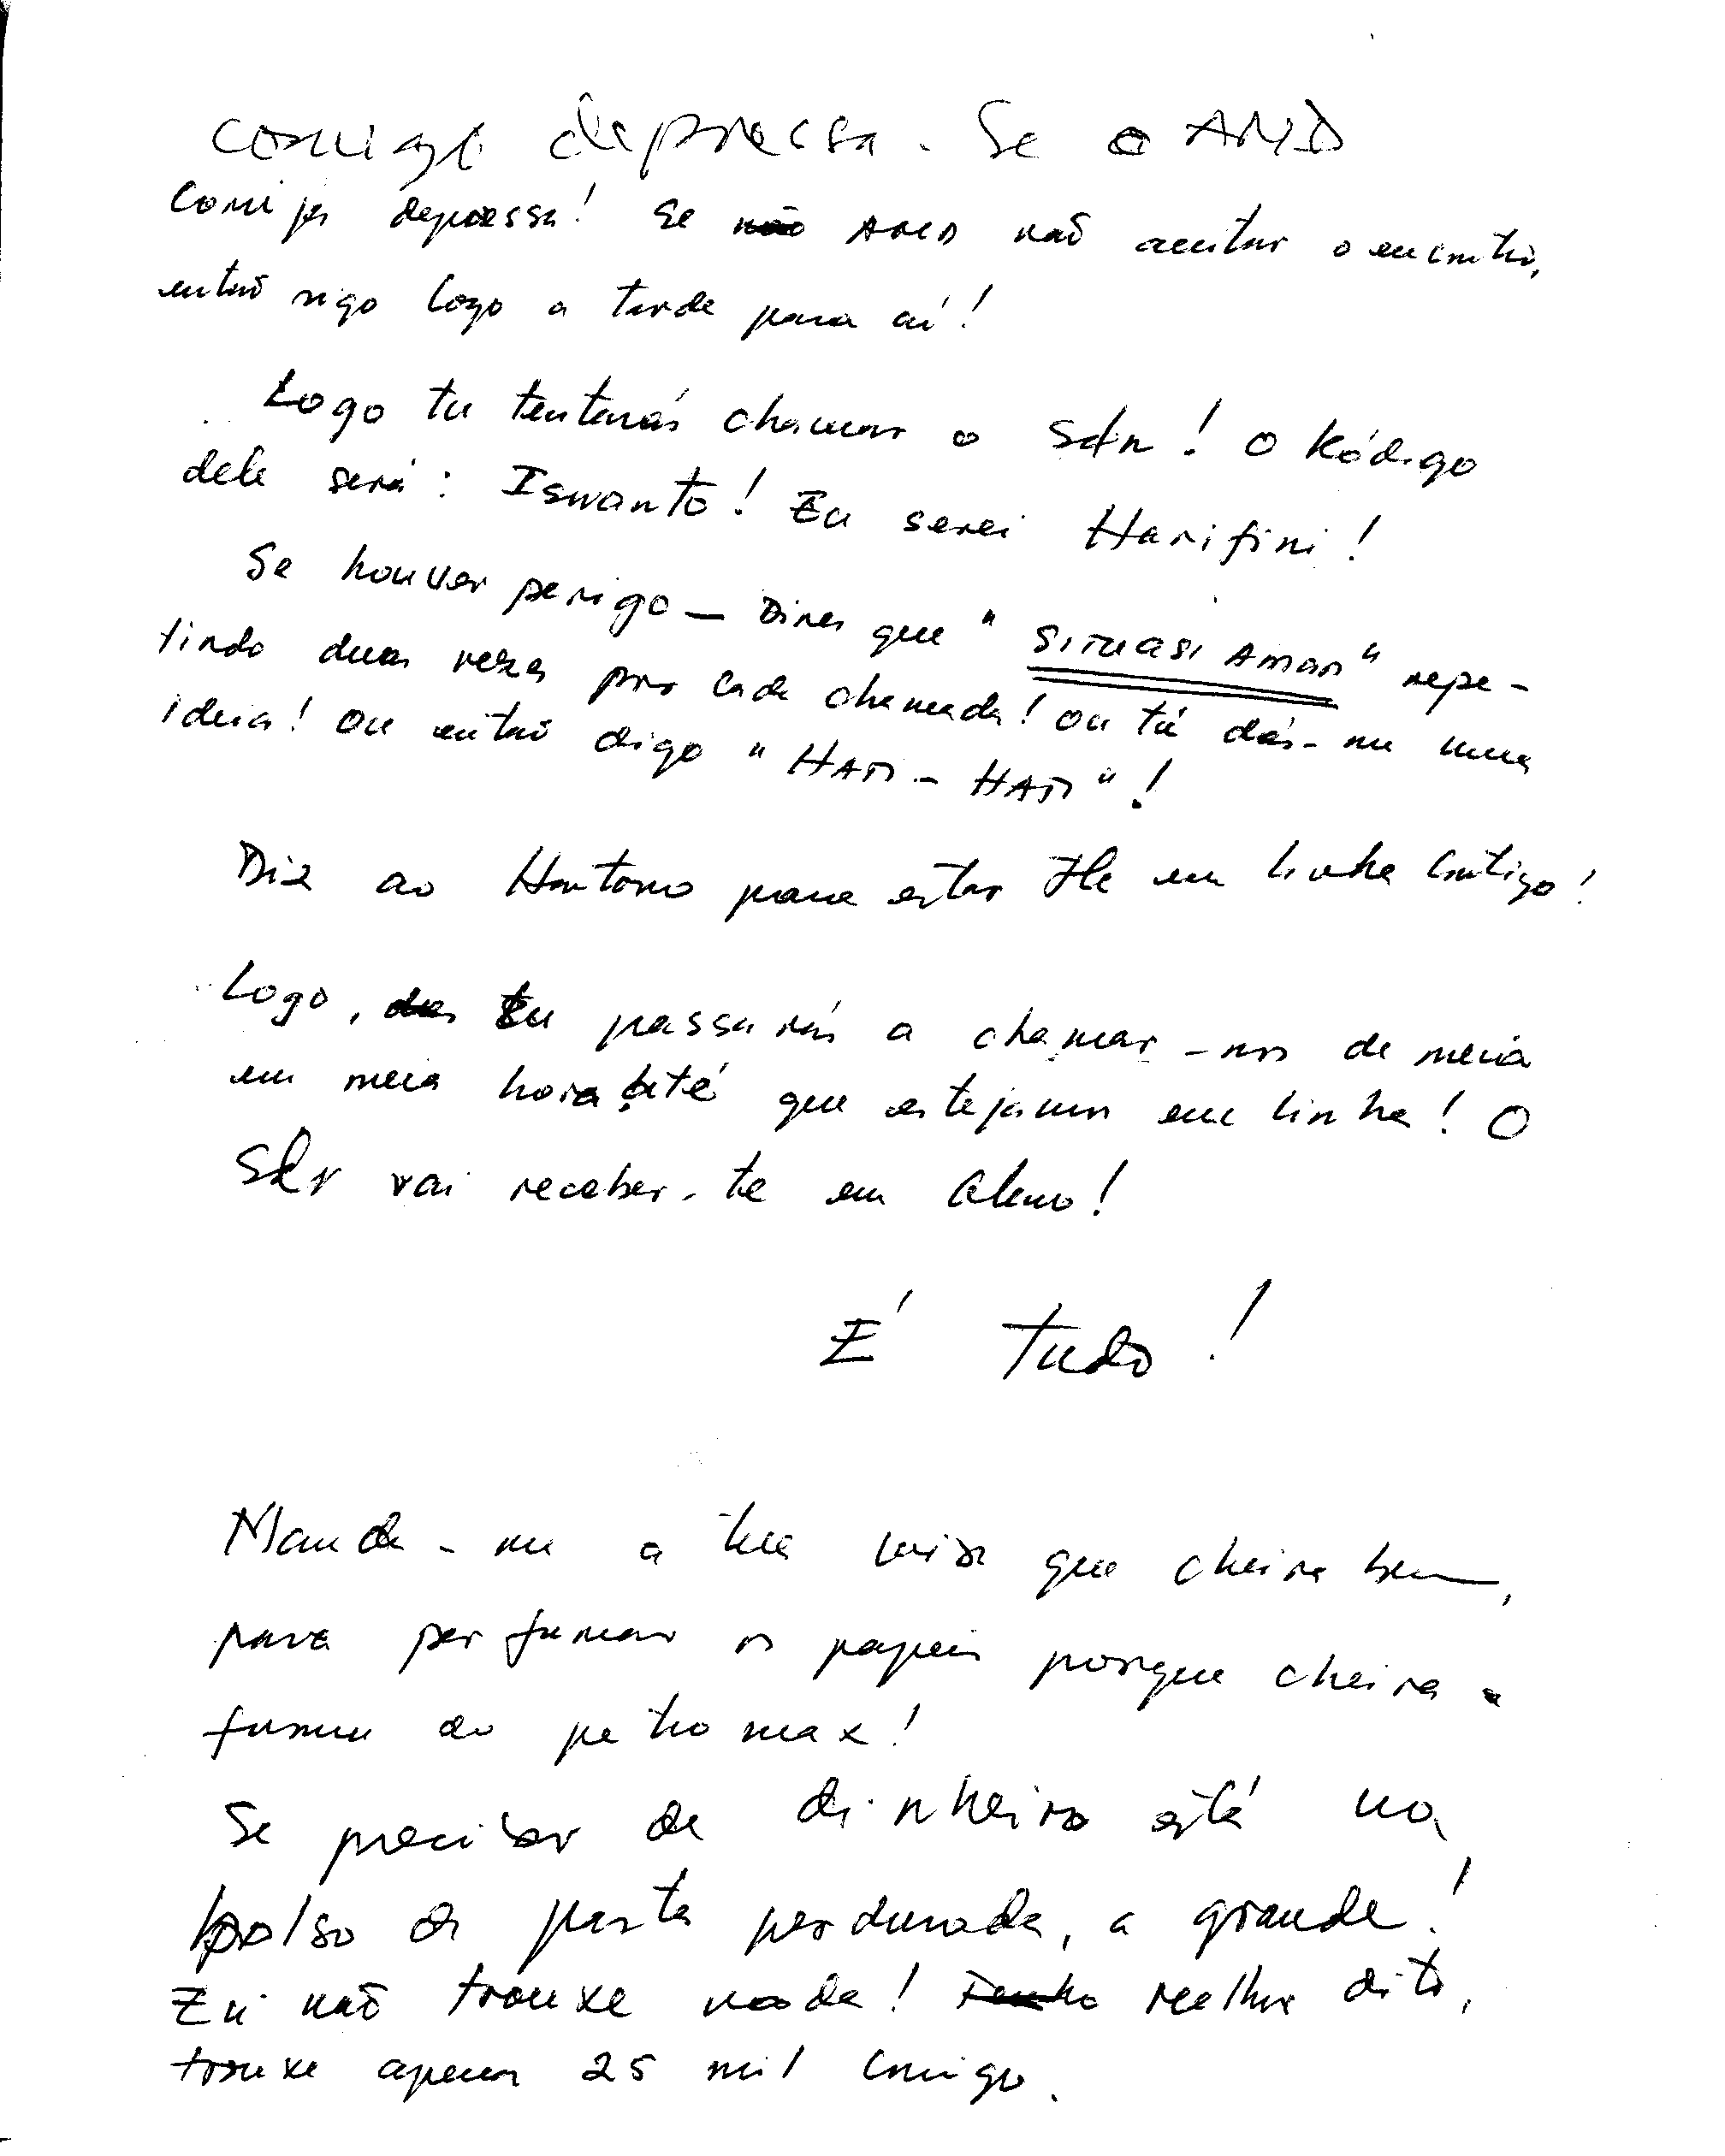 corrige depressa. Se o AMD
Corrija depressa! Se não AMD não aceitar o encontro,
então sigo logo a tarde para aí!
Logo tu tentarás chamar o Sdr! O Kódigo
dele será: Iswanto! Eu serei Harifini!
Se houver perigo — Dirás que "SITUASI AMAN" repe-
tindo duas vezes por cada chamada! Ou tu dás-me uma
ideia! Ou então digo "HAM-HAM"!
Diz ao Hartono para estar Ele em linha contigo!
Logo, tu passarás a chamar-nos de meia
em meia hora até que estejamos em linha! O
SDR vai receber-te em
É tudo!
Manda-me a tua que cheira bem,
para perfumar os papeis porque cheira a
fumu do petromax!
Se precisar de dinheiro está no
bolso da pasta pendurada, a grande!
Eu não trouxe nada! Tenho melhor dito,
trouxe apenas 25 mil comigo.